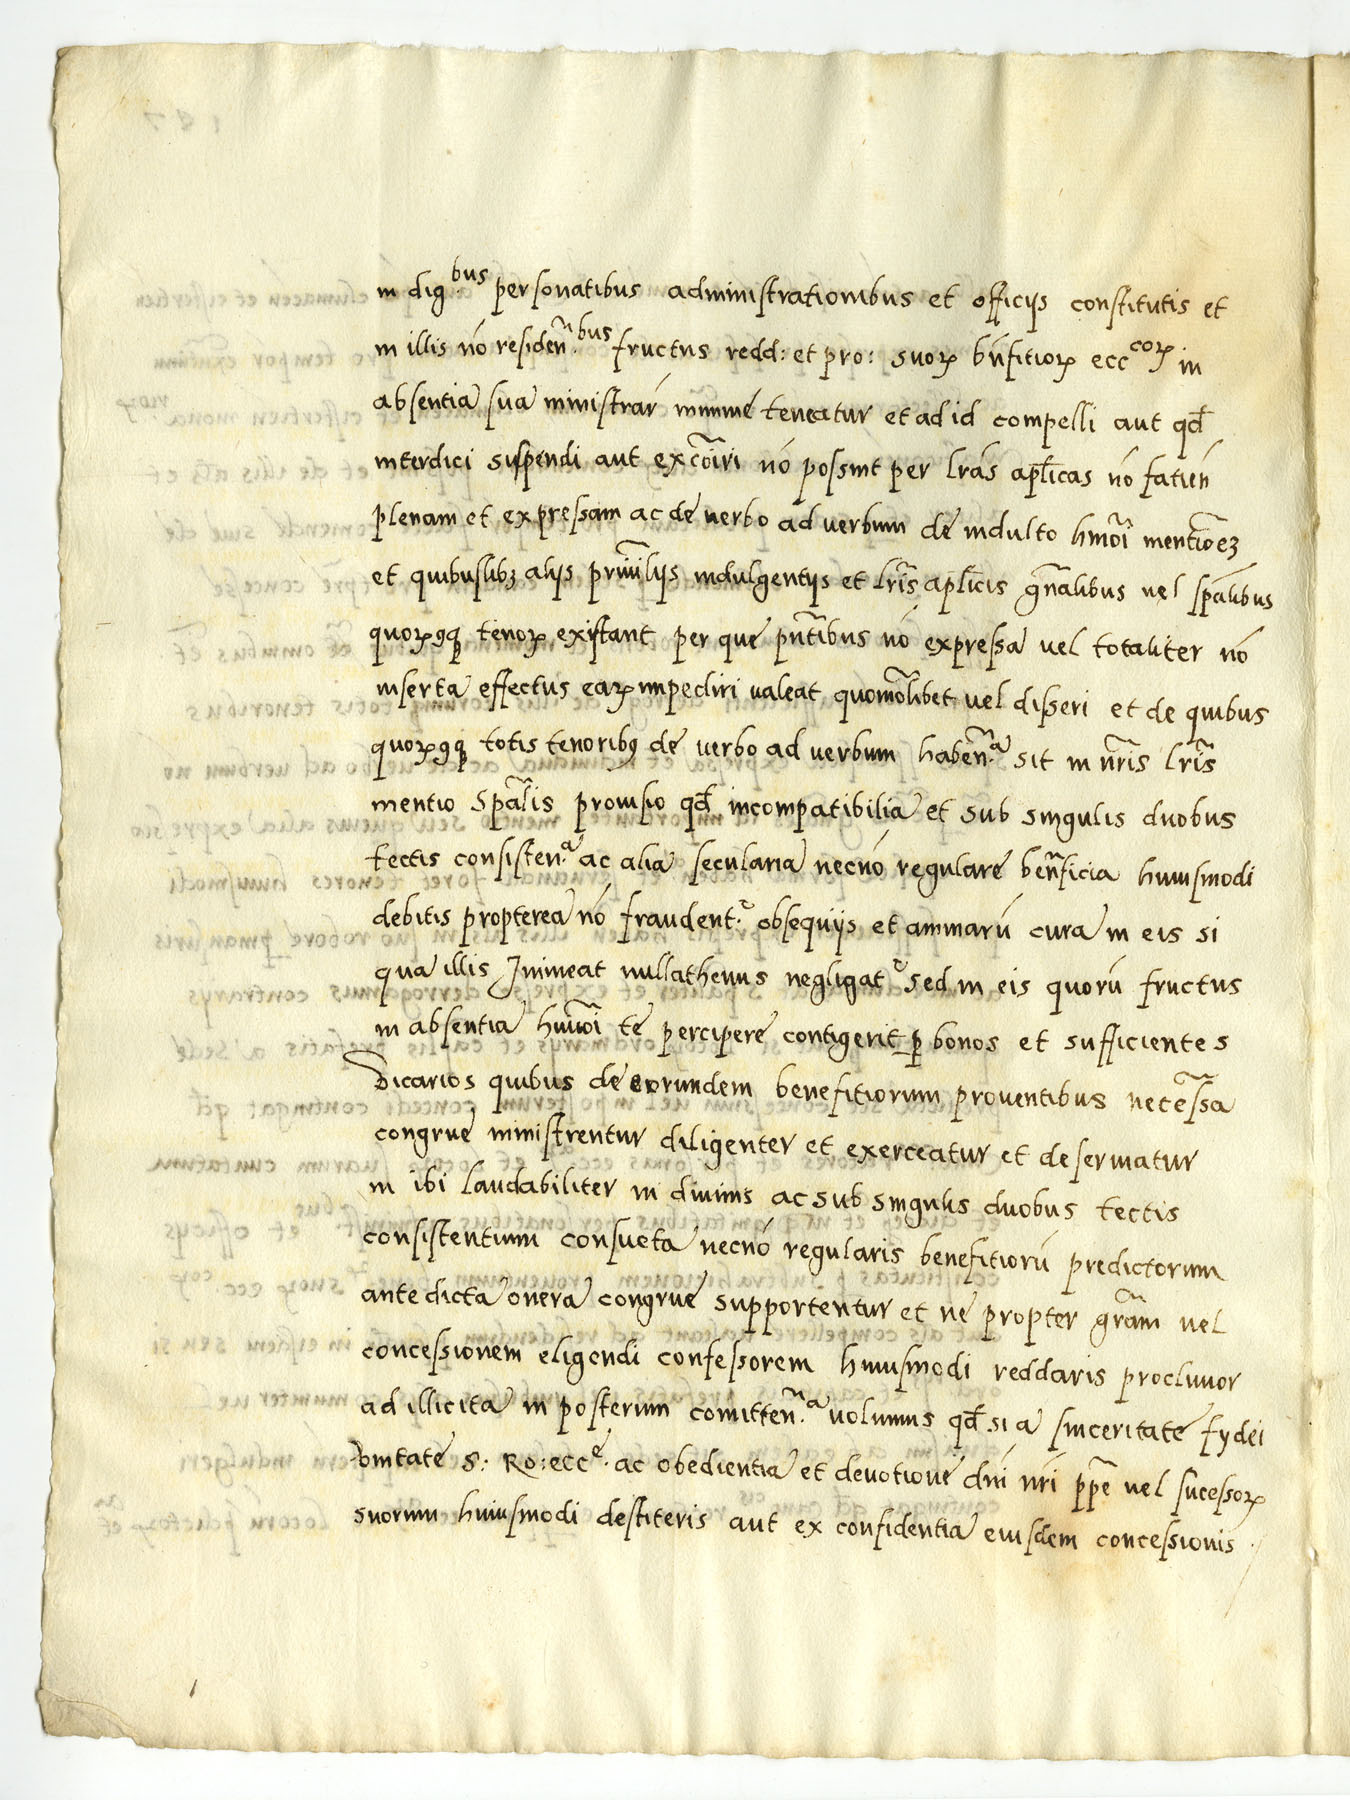 in dig.bus personatibus administrationibus et officijs constitutis et
in illis nō residen̄.bus fructus redd: et pro: suoꝝ bn̄fitioꝝ ecc.coꝝ in
absentia sua ministrar̄ minime teneatur et ad id compelli aut qđ
interdici suspendi aut excōīri nō possint per lr̄as aplīcas nō fatien̄
plenam et expressam ac de verbo ad verbum de indulto hmōi mentioēꝫ
et quibuslibꝫ alijs priuilijs indulgentijs et lr̄is aplīcis gn̄alibus uel spālibus
quoꝝꝯqꝫ tenoꝝ existant per que pn̄tibus nō expressa uel totaliter nō
inserta effectus eaꝝ impediri ualeat quomōlibet uel differi et de quibus
quoꝝꝯqꝫ totis tenoribꝯ de verbo ad verbum haben̄.a sit in nr̄is lr̄is
mentio spālis prouisio qđ incompatibilia et sub singulis duobus
tectis consisten.a ac alia secularia necnō regulare ben̄ficia huiusmodi
debitis propterea nō fraudent.r obsequijs et animarū cura in eis si
qua illis Inineat nullathenus negligat.r sed in eis quorū fructus
in absentia humōi te percipere contigerit ꝑ bonos et sufficientes
Vicarios quibus de eorundem benefitiorum prouentibus necēssa
congrue ministrentur diligenter et exerceatur et deseruiatur
in ibi laudabiliter in diuinis ac sub singulis duobus tectis
consistentium consueta necnō regularis benefitiorū predictorum
ante dicta onera congrue supportentur et ne propter grām uel
concessionem eligendi confessorem huiusmodi reddaris procliuior
ad illicita in posterum comitten̄.a uolumus qđ si a sinceritate fydei
vnitate S: Ro: ecc.e ac obedientia et devotione dn̄i nr̄i ppē uel sucessoꝝ
suorum huiusmodi destiteris aut ex confidentia eiusdem concessionis